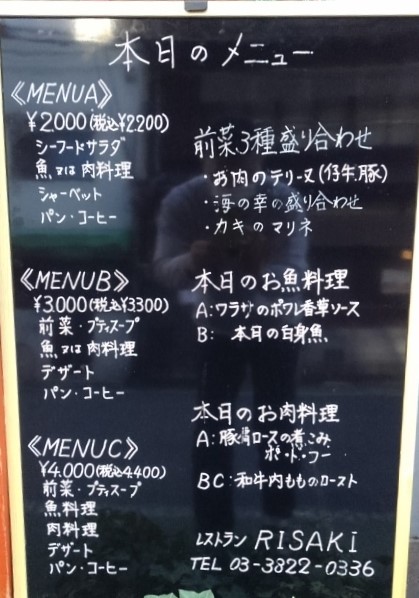 本日のメニュー
《MENUA》
¥2.000(税込¥2200)
シーフードサラダ
魚又は肉料理
シャーベット
パン・コーヒー
《MENUB》
¥3.000(税込¥3300)
前菜・プティスープ
魚又は肉料理
デザート
パン・コーヒー
《MENUC》
¥4.000(税込4.400)
前菜・プティスープ
魚料理
肉料理
デザート
パン・コーヒー
前菜3種盛り合わせ
・お肉のテリーヌ(仔牛豚)
・海の幸の盛り合わせ
・カキのマリネ
本日のお魚料理
A:ワラサのポワレ香草ソース
B: 本日の白身魚
本日のお肉料理
A:豚肩ロースの煮こみ
ポ・ド・フー
BC:和牛内もものロースト
レストラン RISAKI
TEL 03-3822-0336